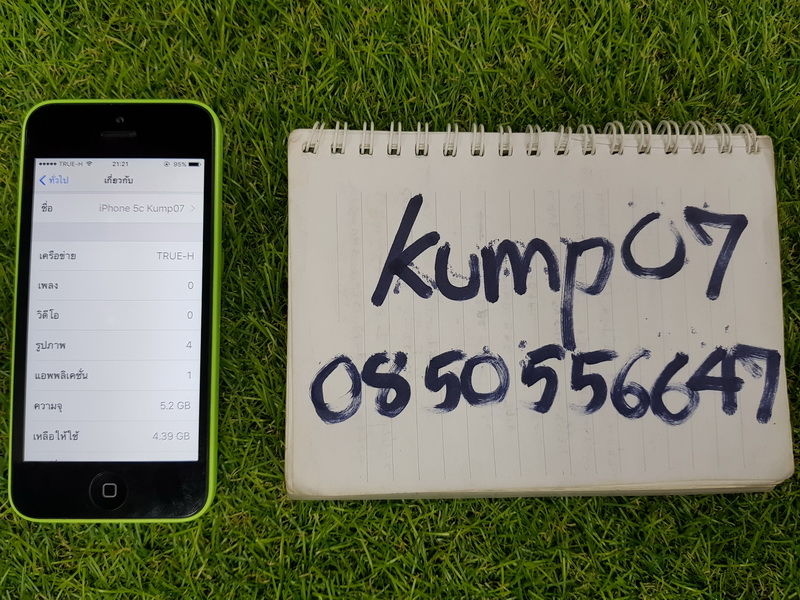 TRUE-H 21:21 95%
ทั่วไป เกี่ยวกับ
ชื่อ iPhone 5c Kump07
เครือข่าย TRUE-H
เพลง 0
วิดีโอ 0
รูปภาพ 4
แอพพลิเคชั่น 1
ความจุ 5.2 GB
เหลือให้ใช้ 4.39 GB
kump07
0850556647